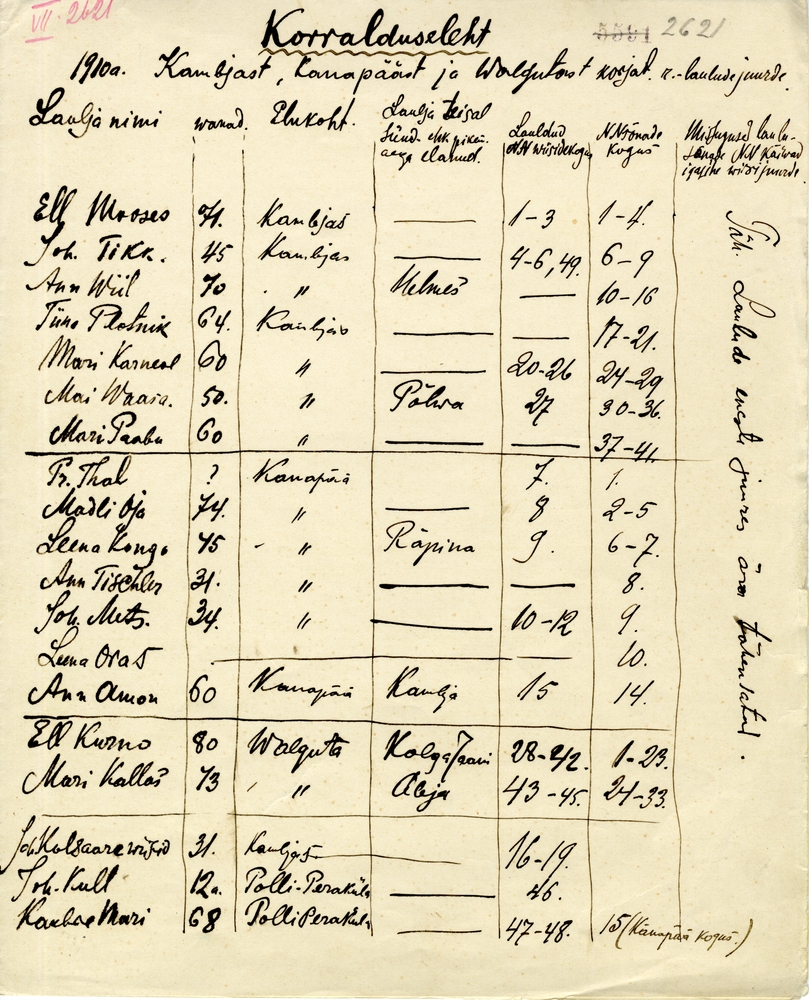 VII. 2621
5551 2621
Korralduseleht
1910a. Kambjast, Kanapääst ja Walgutast korjat. r.-laulude juurde.
Laulja nimi wanad. Elukoht. Laulja teisal sünd. ehk pikem. aega elanud. Lauldud NN wiiside kogus NN sõnade kogus Missugused laulu-sõnade NN käiwad igaühe wiisi juurde
Ell Mooses 71. Kambjas — 1-3 1-4.
Joh. Tikk. 45 Kambjas — 4-6, 49. 6-9
Ann Wiil 70 " Helmes — 10-16
Tiino Plotnik 64. Kambjas — — 17-21.
Mari Karneol 60 " — 20-26 24-29
Mai Waasa. 50. " Põlwa 27 30-36.
Mari Paabu 60 " — — 37-41.
Pr. Thal ? Kanapää 7. 1.
Madli Oja 74. " — 8 2-5
Leena Kongo 75 " Räpina 9. 6-7.
Ann Tischler 31. " — — 8.
Joh. Mets. 34. " — 10-12 9.
Leena Oras — — 10.
Ann Amon 60 Kanapää Kambja 15 14.
Ell Kurno 80 Walguta Kolga Jaani 28-42. 1-23.
Mari Kallas 73 " Abja 43-45. 24-33.
Joh. 31. Kambjas — 16-19.
Joh. Kull 12a. Polli-Peraküla — 46.
Mari 68 Polli Peraküla — 47-48. 15 (Kanapää kogus.)
Täh. Laulude eneste juures ära tähendatud.